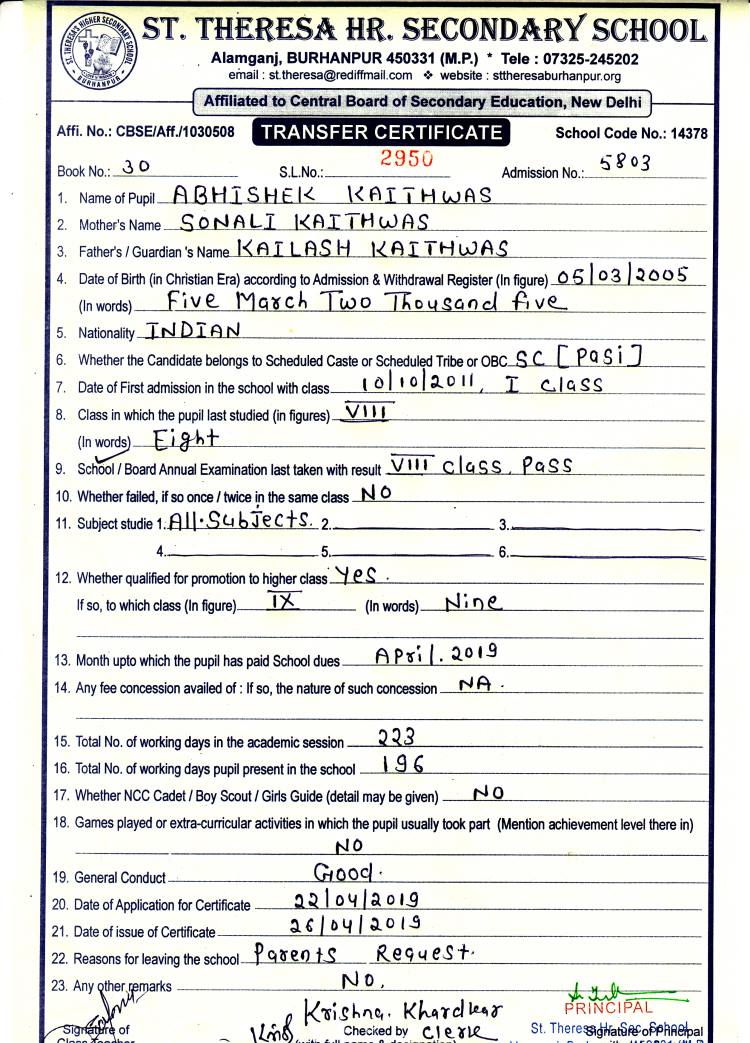 ST. THERESA'S HIGHER SECONDARY SCHOOL
BURHANPUR
ST. THERESA HR. SECONDARY SCHOOL
Alamganj, BURHANPUR 450331 (M.P.) * Tele : 07325-245202
email : st.theresa@rediffmail.com ❖ website : sttheresaburhanpur.org
Affiliated to Central Board of Secondary Education, New Delhi
Affi. No.: CBSE/Aff./1030508 TRANSFER CERTIFICATE School Code No.: 14378
Book No.: 30 S.L.No.: 2950 Admission No.: 5803
1. Name of Pupil ABHISHEK KAITHWAS
2. Mother's Name SONALI KAITHWAS
3. Father's / Guardian 's Name KAILASH KAITHWAS
4. Date of Birth (in Christian Era) according to Admission & Withdrawal Register (In figure) 05/03/2005
(In words) Five March Two Thousand five
5. Nationality INDIAN
6. Whether the Candidate belongs to Scheduled Caste or Scheduled Tribe or OBC SC [Pasi]
7. Date of First admission in the school with class 10/10/2011, I class
8. Class in which the pupil last studied (in figures) VIII
(In words) Eight
9. School / Board Annual Examination last taken with result VIII class, Pass
10. Whether failed, if so once / twice in the same class NO
11. Subject studie 1. All Subjects. 2. 3.
4. 5. 6.
12. Whether qualified for promotion to higher class Yes.
If so, to which class (In figure) IX (In words) Nine
13. Month upto which the pupil has paid School dues April. 2019
14. Any fee concession availed of : If so, the nature of such concession NA.
15. Total No. of working days in the academic session 223
16. Total No. of working days pupil present in the school 196
17. Whether NCC Cadet / Boy Scout / Girls Guide (detail may be given) NO
18. Games played or extra-curricular activities in which the pupil usually took part (Mention achievement level there in)
NO
19. General Conduct Good.
20. Date of Application for Certificate 22/04/2019
21. Date of issue of Certificate 26/04/2019
22. Reasons for leaving the school Parents Request.
23. Any other remarks No.
Krishna. Khardkar PRINCIPAL
Signature of Checked by Clerk St. Theresa Hr. Sec. School Signature of Principal